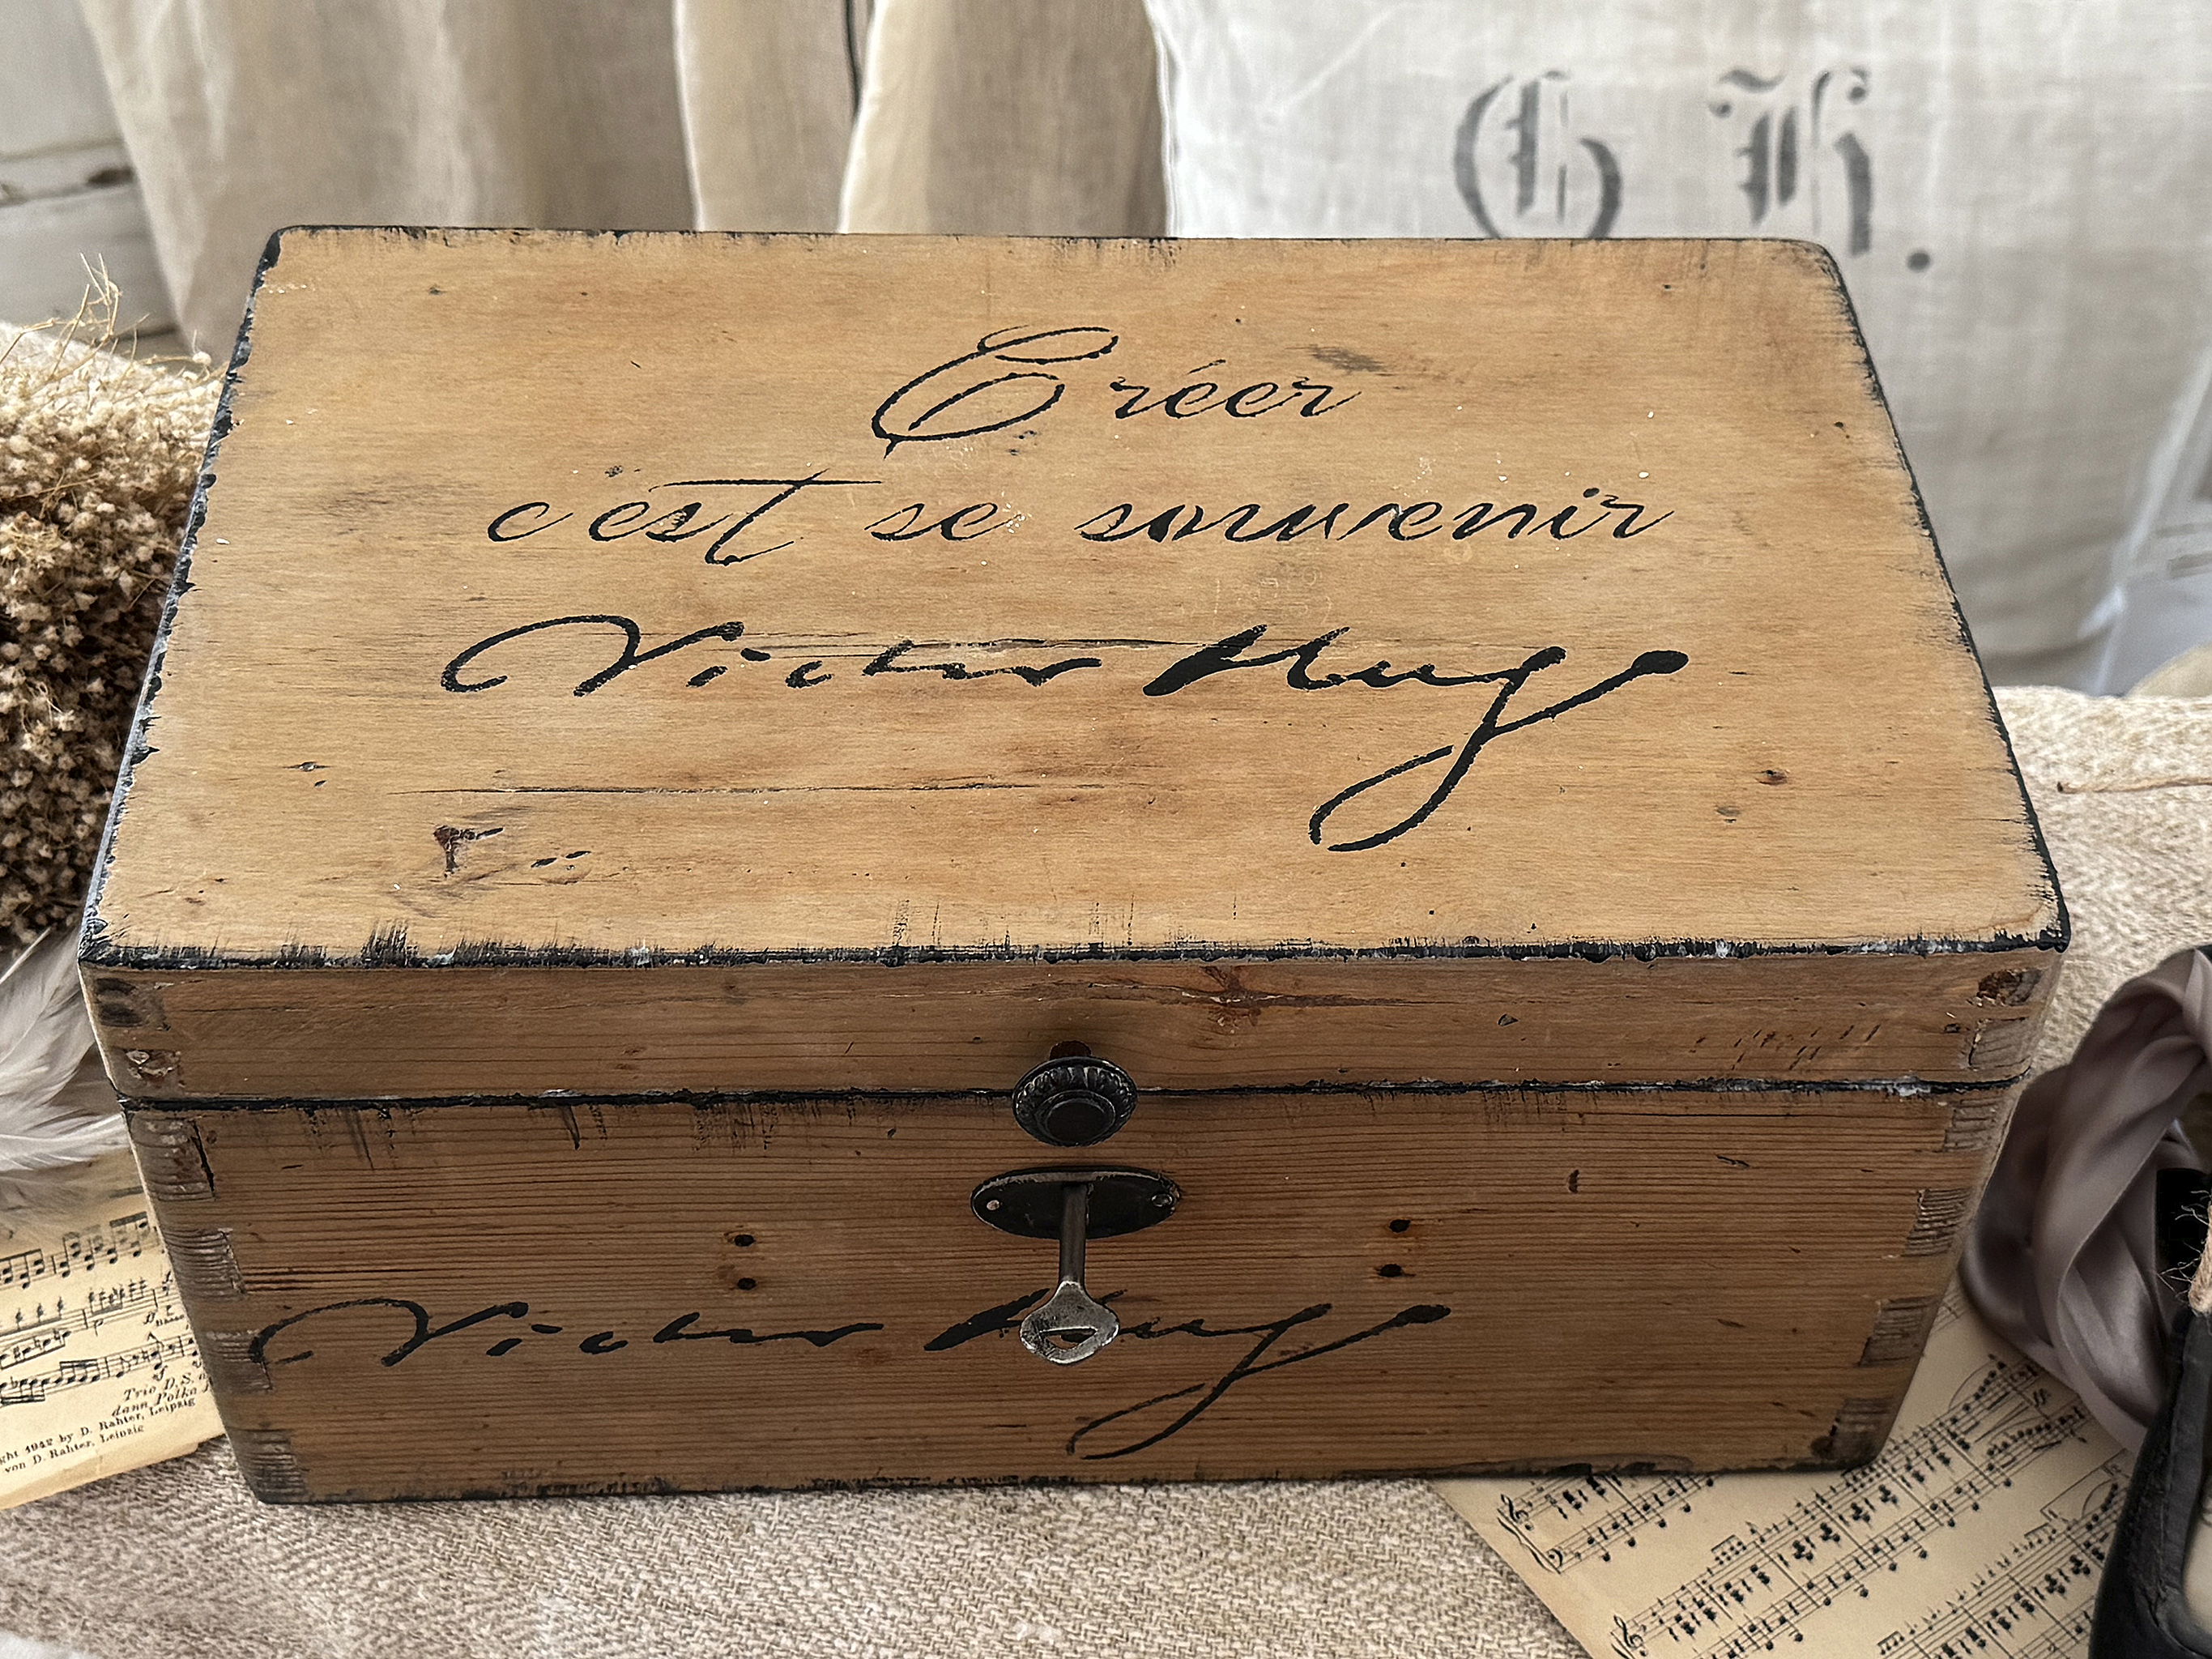 G. H.
Créer
c'est se souvenir
Victor Hugo
Victor Hugo
Trio D. S.
dann Polka
ght 1942 by D. Rahter, Leipzig
von D. Rahter, Leipzig